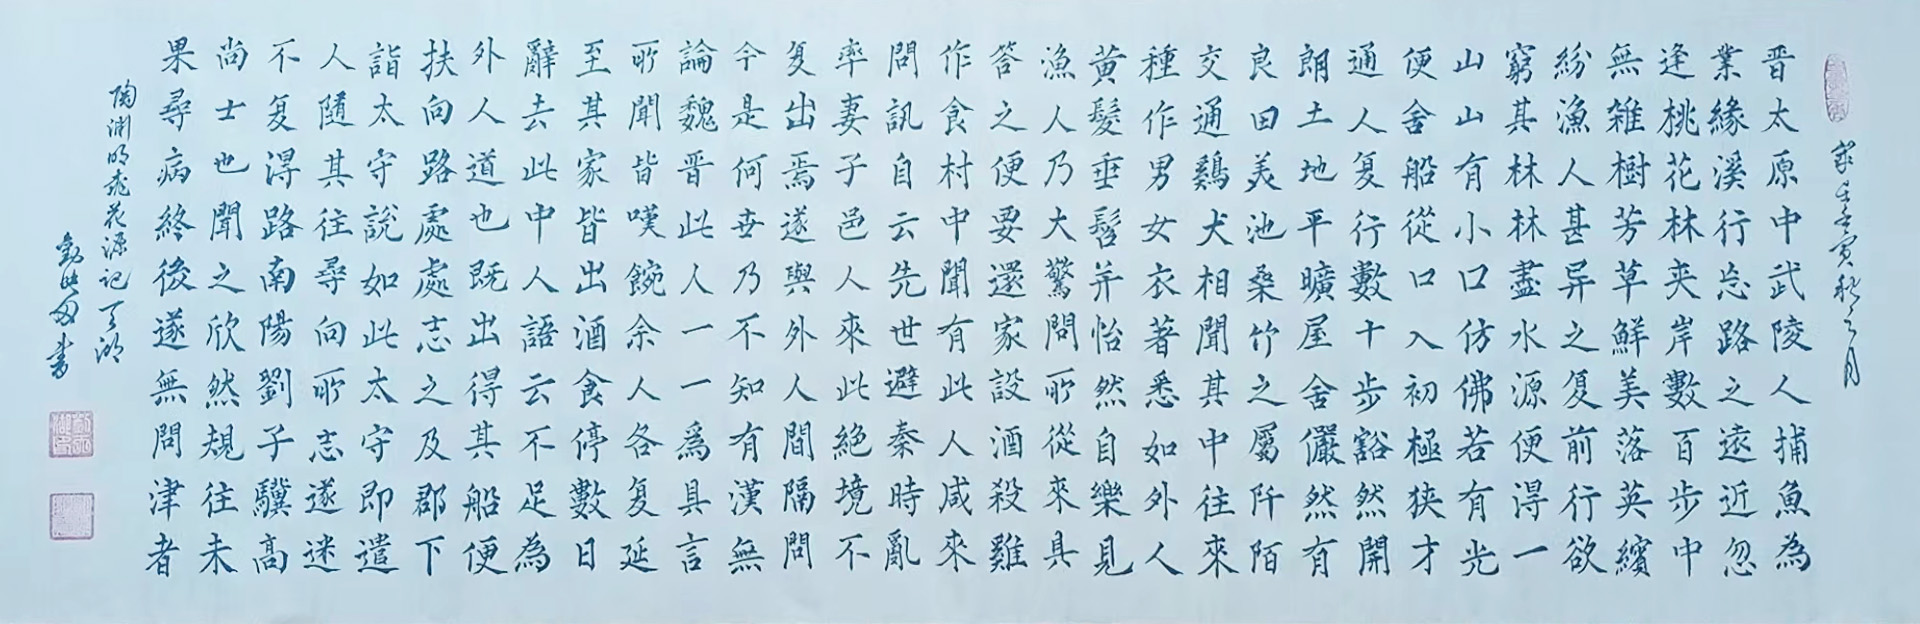 壬寅秋之月
晋太原中武陵人捕魚為
業緣溪行忘路之遠近忽
逢桃花林夹岸數百步中
無雜樹芳草鮮美落英繽
紛漁人甚异之复前行欲
窮其林林盡水源便得一
山山有小口仿佛若有光
便舍船從口入初極狹才
通人复行數十步豁然開
朗土地平曠屋舍儼然有
良田美池桑竹之屬阡陌
交通鷄犬相聞其中往來
種作男女衣著悉如外人
黃髮垂髫并怡然自樂見
漁人乃大驚問所從來具
答之便要還家設酒殺雞
作食村中聞有此人咸來
問訊自云先世避秦時亂
率妻子邑人來此絕境不
复出焉遂與外人間隔問
今是何世乃不知有漢無
論魏晋此人一一爲具言
所聞皆嘆惋余人各复延
至其家皆出酒食停數日
辭去此中人語云不足為
外人道也既出得其船便
扶向路處處志之及郡下
詣太守說如此太守即遣
人隨其往尋向所志遂迷
不复得路南陽劉子驥高
尚士也聞之欣然規往未
果尋病終後遂無問津者
陶淵明桃花源記天湖
書